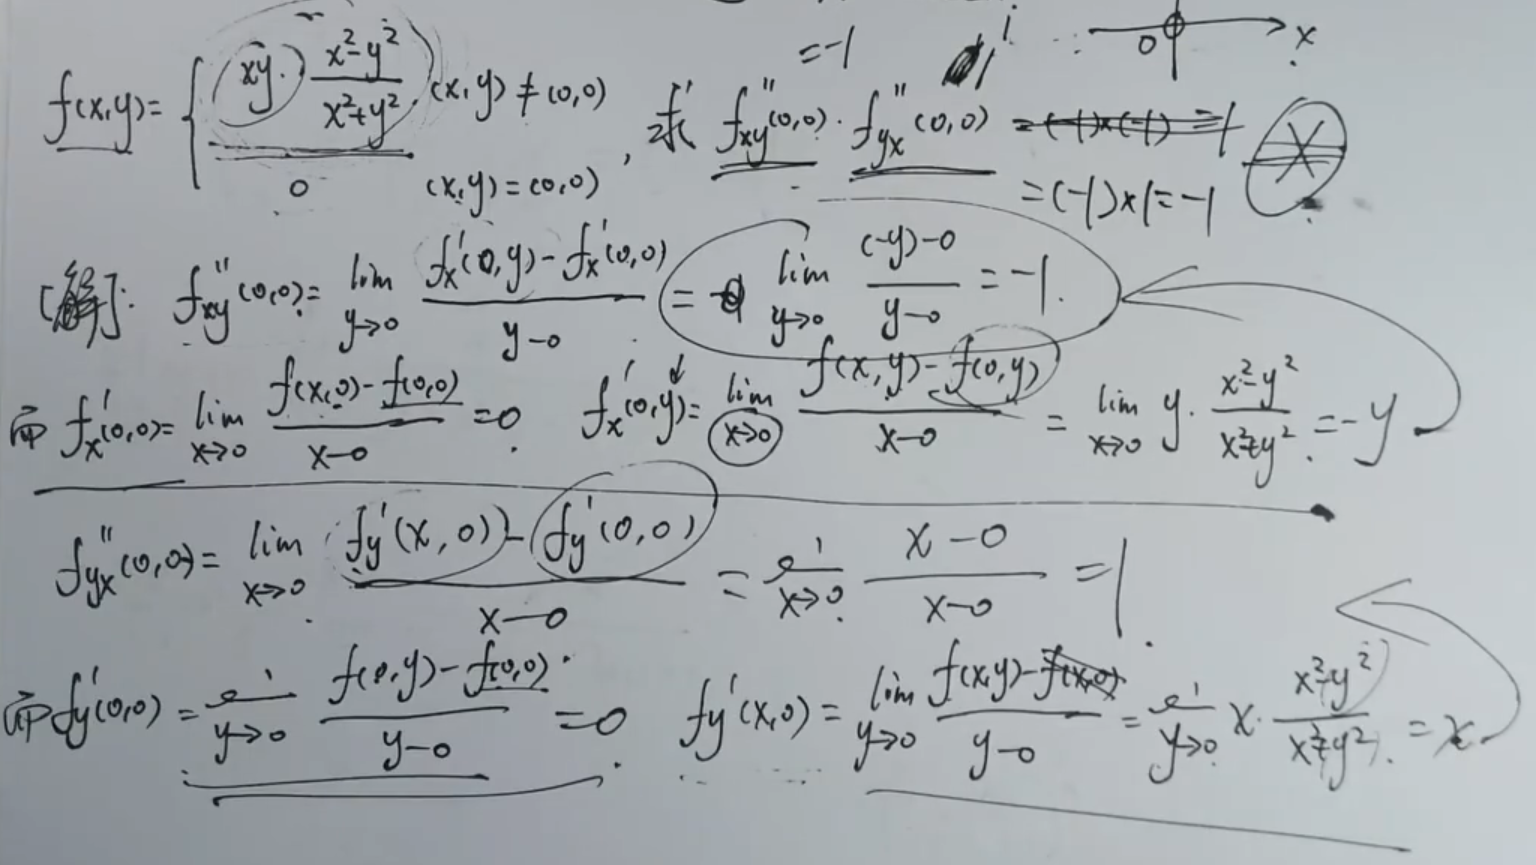 f(x,y)= { xy·(x²-y²)/(x²+y²), (x,y)≠(0,0)
0 (x,y)=(0,0) , 求 f''xy(0,0)·f''yx(0,0) =(-1)×(-1)=1
=-1
0 x
=(-1)×1=-1
[解]: f''xy(0,0)= lim y→0 (f'x(0,y)-f'x(0,0))/(y-0) = lim y→0 ((-y)-0)/(y-0) =-1.
而 f'x(0,0)= lim x→0 (f(x,0)-f(0,0))/(x-0) =0. f'x(0,y)= lim x→0 (f(x,y)-f(0,y))/(x-0) = lim x→0 y·(x²-y²)/(x²+y²) =-y
f''yx(0,0)= lim x→0 (f'y(x,0)-f'y(0,0))/(x-0) = lim x→0 (x-0)/(x-0) =1.
而 f'y(0,0) = lim y→0 (f(0,y)-f(0,0))/(y-0) =0. f'y(x,0)= lim y→0 (f(x,y)-f(x,0))/(y-0) = lim y→0 x·(x²-y²)/(x²+y²) =x